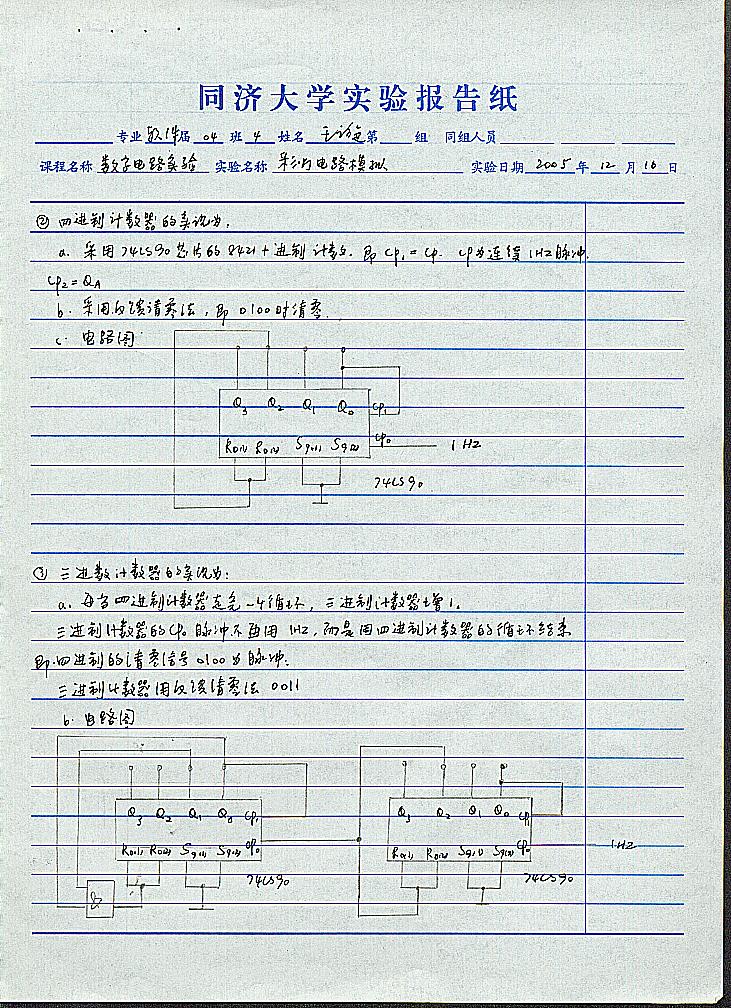 同济大学实验报告纸
专业 软件 届 04 班 4 姓名 王 第 组 同组人员
课程名称 数字电路实验 实验名称 彩灯电路模拟 实验日期 2005 年 12 月 16 日
② 四进制计数器的实现为:
a. 采用74LS90芯片的8421十进制计数. 即 CP1 = CP. CP为连续1HZ脉冲.
CP2 = QA
b. 采用反馈清零法, 即 0100时清零.
c. 电路图
Q3 Q2 Q1 Q0 CP1
R0(1) R0(2) S9(1) S9(2) CP0 1HZ
74LS90
③ 三进数计数器的实现为:
a. 每当四进制计数器走完一个循环, 三进制计数器增1.
三进制计数器的CP0脉冲不再用1HZ, 而是用四进制计数器的循环结束
即四进制的清零信号0100为脉冲.
三进制计数器用反馈清零法 0011
b. 电路图
Q3 Q2 Q1 Q0 CP1 Q3 Q2 Q1 Q0 CP1
R0(1) R0(2) S9(1) S9(2) CP0 R0(1) R0(2) S9(1) S9(2) CP0 1HZ
74LS90 74LS90
&